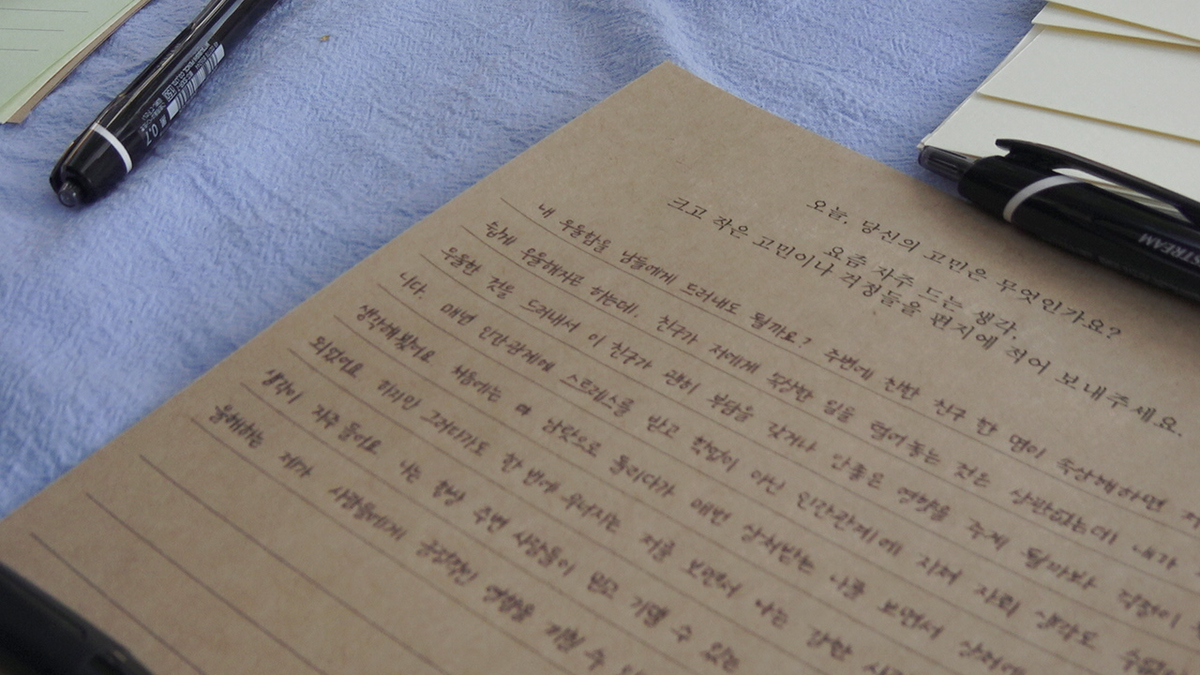 오늘, 당신의 고민은 무엇인가요?
요즘 자주 드는 생각,
크고 작은 고민이나 걱정들을 편지에 적어 보내주세요.
내 우울함을 남들에게 드러내도 될까요? 주변에 친한 친구 한 명이 속상해하면
쉽게 우울해지곤 하는데. 친구가 저에게 속상한 일을 털어놓는 것은 상관없는데 내가
우울한 것을 드러내서 이 친구가 괜히 부담을 갖거나 안좋은 영향을 주게 될까봐 걱정이
니다. 매번 인간관계에 스트레스를 받고 학업이 아닌 인간관계에 지쳐 자퇴 생각도
생각해봤어요 처음에는 남탓으로 돌리다가 매번 상처받는 나를 보면서
되었어요 하지만 그러다가도 한 번에 무너지는 저를 보면서 나는 강한
생각이 자주 들어요 나는 항상 주변 사람들이 믿고 기댈 수 있는
울해하는 제가 사람들에게 긍정적인 영향을 끼칠 수
0.7
STREAM